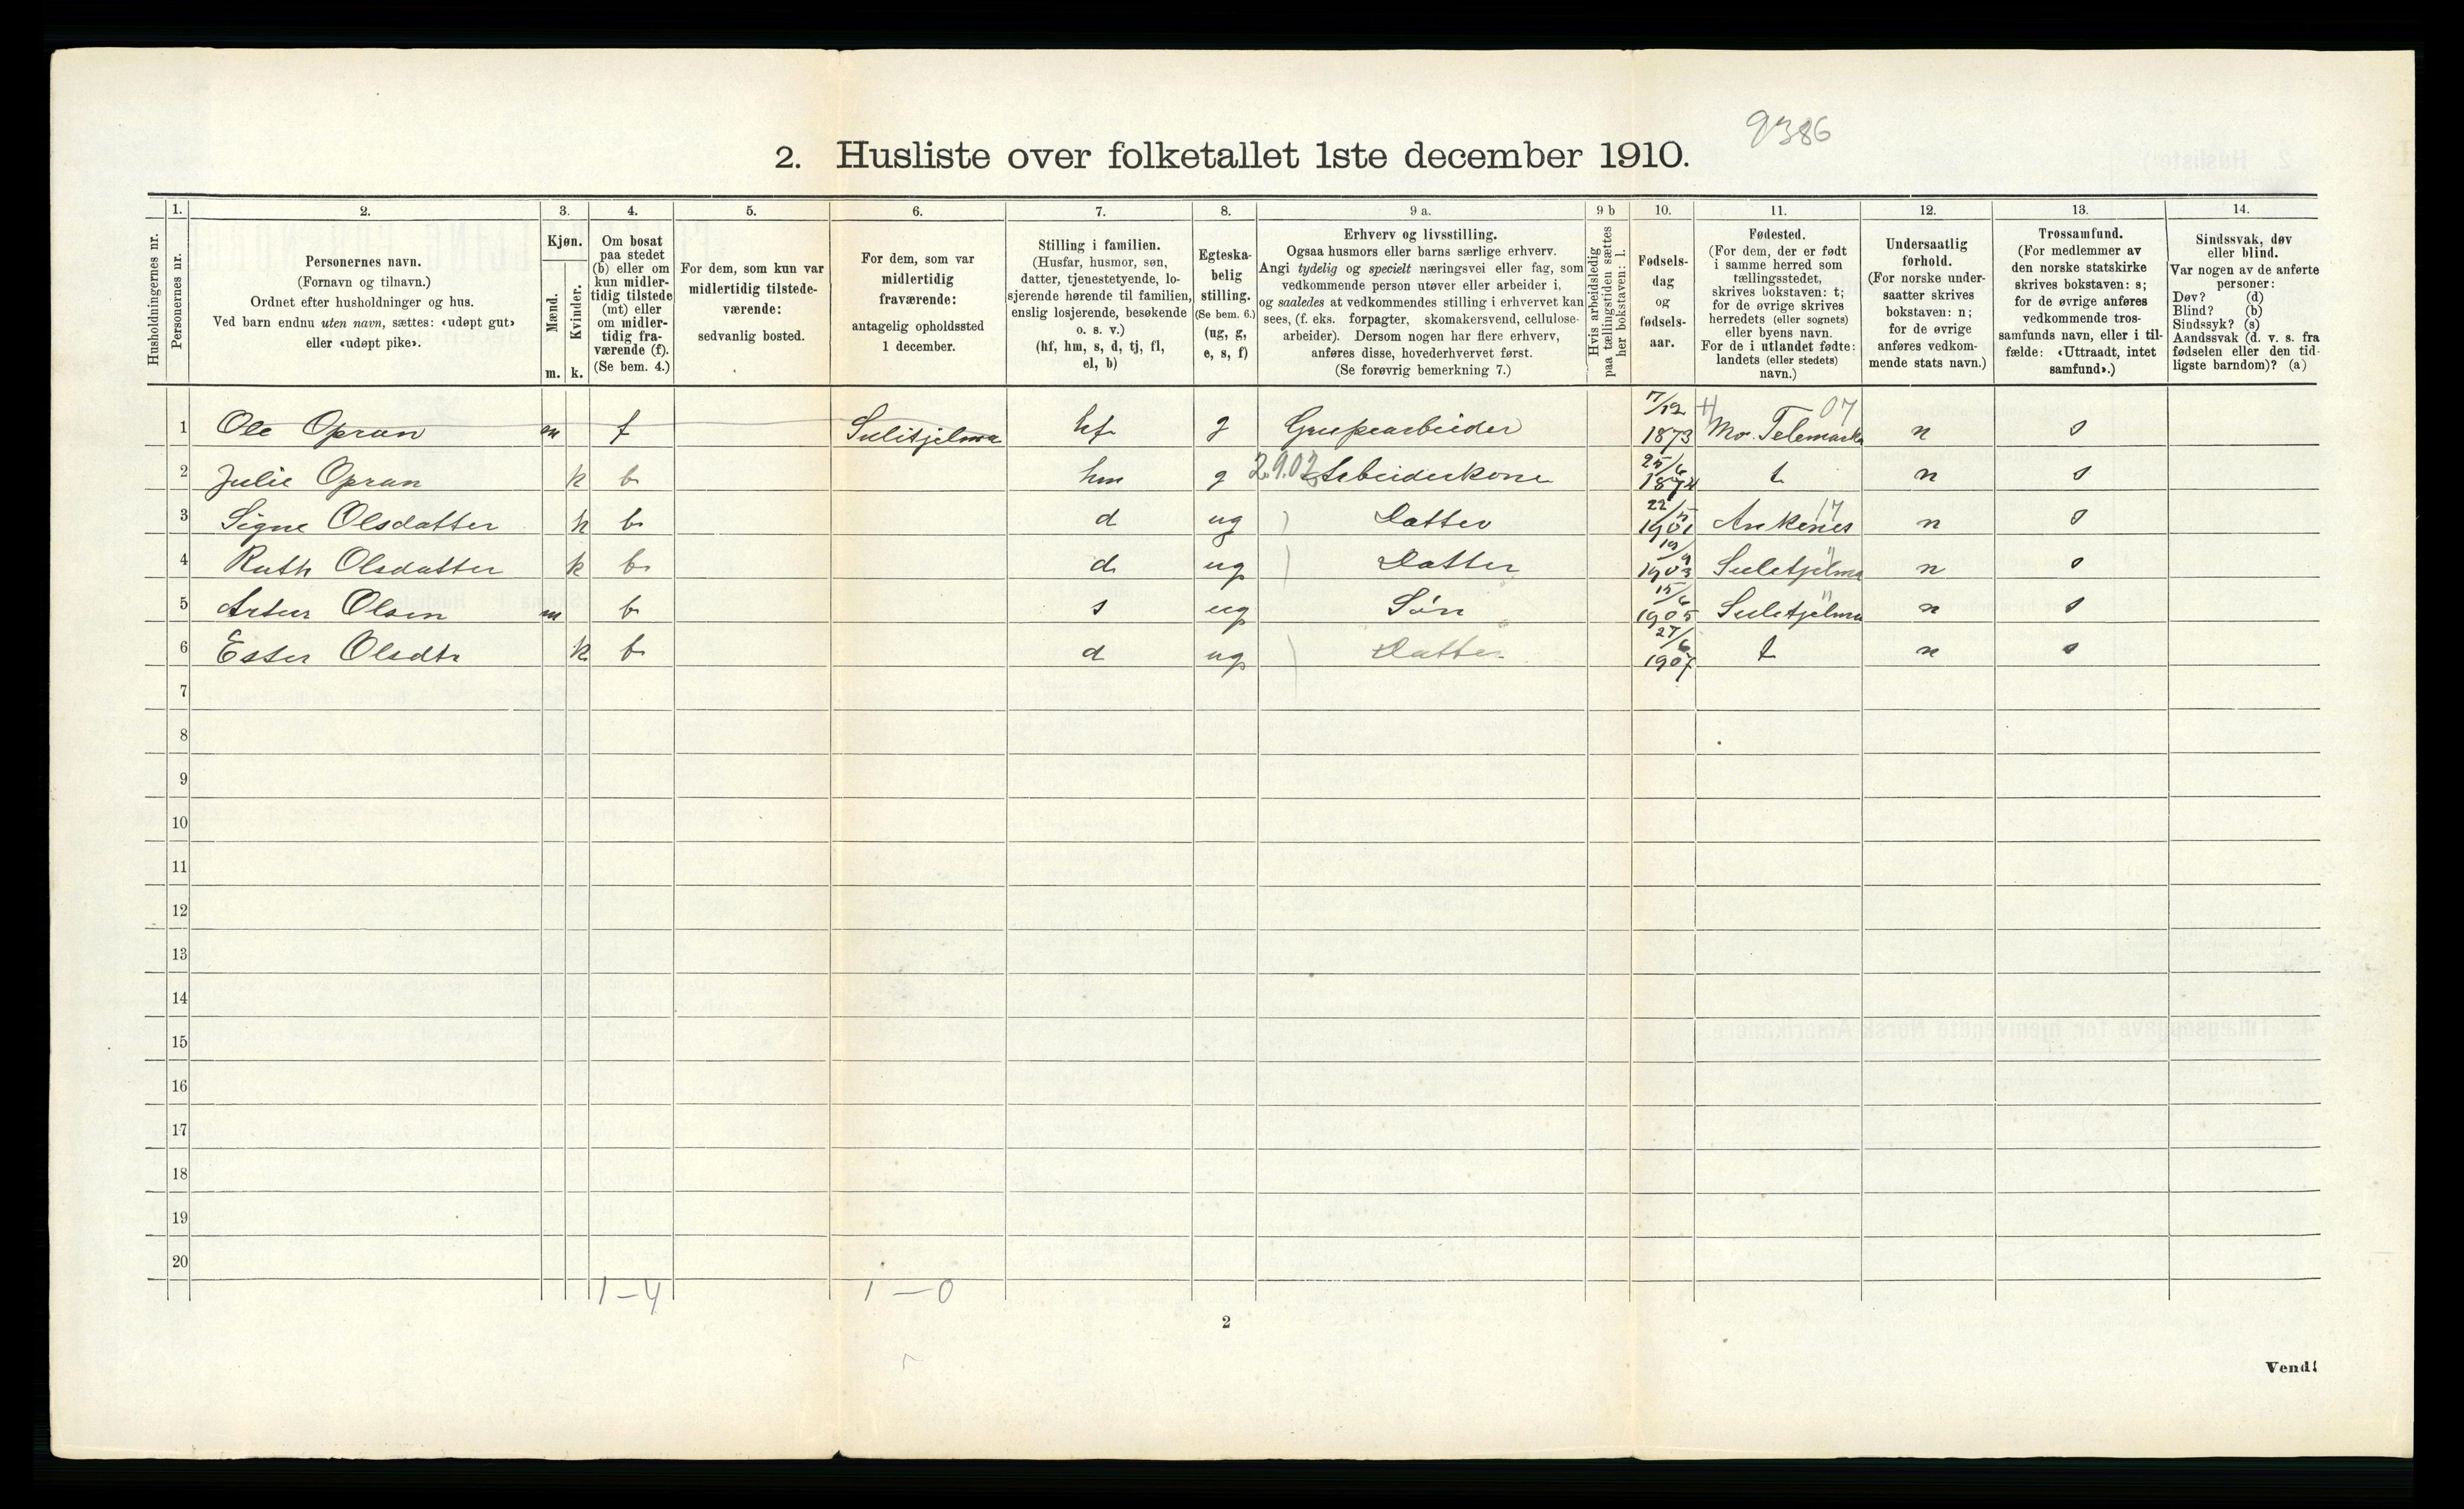 9386
2. Husliste over folketallet 1ste december 1910.
Husholdningernes nr.
1. Personernes nr.
2. Personernes navn.
(Fornavn og tilnavn.)
Ordnet efter husholdninger og hus.
Ved barn endnu uten navn, sættes: «udøpt gut»
eller «udøpt pike».
3. Kjøn.
Mænd. m.
Kvinder. k.
4. Om bosat
paa stedet
(b) eller om
kun midler-
tidig tilstede
(mt) eller
om midler-
tidig fra-
værende (f).
(Se bem. 4.)
5. For dem, som kun var
midlertidig tilstede-
værende:
sedvanlig bosted.
6. For dem, som var
midlertidig
fraværende:
antagelig opholdssted
1 december.
7. Stilling i familien.
(Husfar, husmor, søn,
datter, tjenestetyende, lo-
sjerende hørende til familien,
enslig losjerende, besøkende
o. s. v.)
(hf, hm, s, d, tj, fl,
el, b)
8. Egteska-
belig
stilling.
(Se bem. 6.)
(ug, g,
e, s, f)
9 a. Erhverv og livsstilling.
Ogsaa husmors eller barns særlige erhverv.
Angi tydelig og specielt næringsvei eller fag, som
vedkommende person utøver eller arbeider i,
og saaledes at vedkommendes stilling i erhvervet kan
sees, (f. eks. forpagter, skomakersvend, cellulose-
arbeider). Dersom nogen har flere erhverv,
anføres disse, hovederhvervet først.
(Se forøvrig bemerkning 7.)
9 b Hvis arbeidsledig
paa tællingstiden sættes
her bokstaven: l.
10. Fødsels-
dag
og
fødsels-
aar.
11. Fødested.
(For dem, der er født
i samme herred som
tællingsstedet,
skrives bokstaven: t;
for de øvrige skrives
herredets (eller sognets)
eller byens navn.
For de i utlandet fødte:
landets (eller stedets)
navn.)
12. Undersaatlig
forhold.
(For norske under-
saatter skrives
bokstaven: n;
for de øvrige
anføres vedkom-
mende stats navn.)
13. Trossamfund.
(For medlemmer av
den norske statskirke
skrives bokstaven: s;
for de øvrige anføres
vedkommende tros-
samfunds navn, eller i til-
fælde: «Uttraadt, intet
samfund».)
14. Sindssvak, døv
eller blind.
Var nogen av de anførte
personer:
Døv? (d)
Blind? (b)
Sindssyk? (s)
Aandssvak (d. v. s. fra
fødselen eller den tid-
ligste barndom)? (a)
1 Ole Opran m f Sulitjelma hf g Grupearbeider 7/12 1873 Mo. Telemark 07 n s
2 Julie Opran k b hm g 2.9.02 Arbeiderkone 25/6 1874 t n s
3 Signe Olsdatter k b d ug Datter 22/5 1901 Ankenes 17 n s
4 Ruth Olsdatter k b d ug Datter 19/9 1903 Suletjelma " n s
5 Artur Olsen m b s ug Søn 15/6 1905 Suletjelma " n s
6 Ester Olsdtr k b d ug Datter 27/6 1907 t n s
7
8
9
10
11
12
13
14
15
16
17
18
19
20
1-4 1-0
2
Vend!